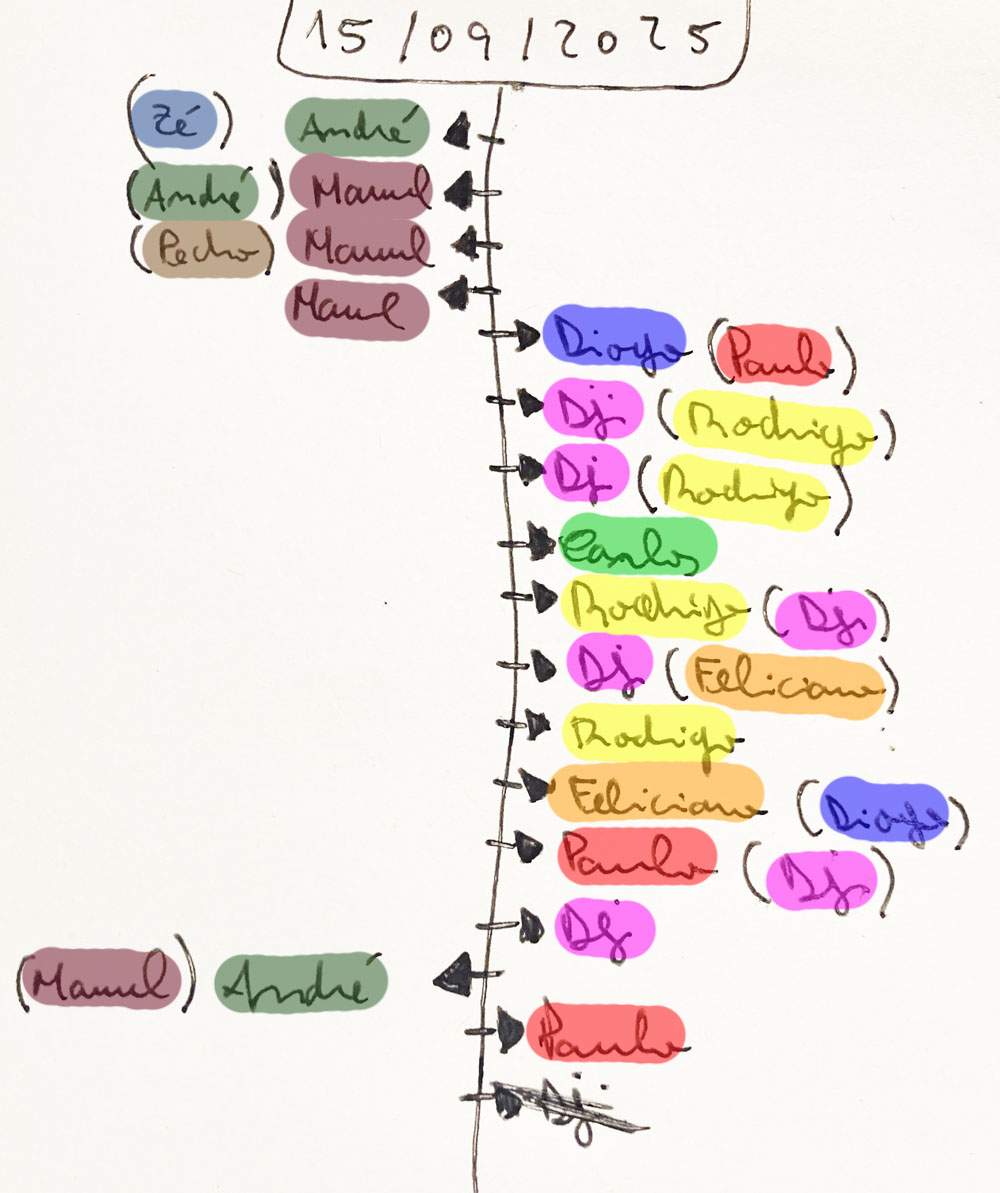 15/09/2025
(Zé) André
(André) Manuel
(Pedro) Manuel
Manuel
Diogo (Paulo)
Dj (Rodrigo)
Dj (Rodrigo)
Carlos
Rodrigo (Dj)
Dj (Feliciano)
Rodrigo
Feliciano (Diogo)
Paulo (Dj)
Dj
(Manuel) André
Paulo
Dj